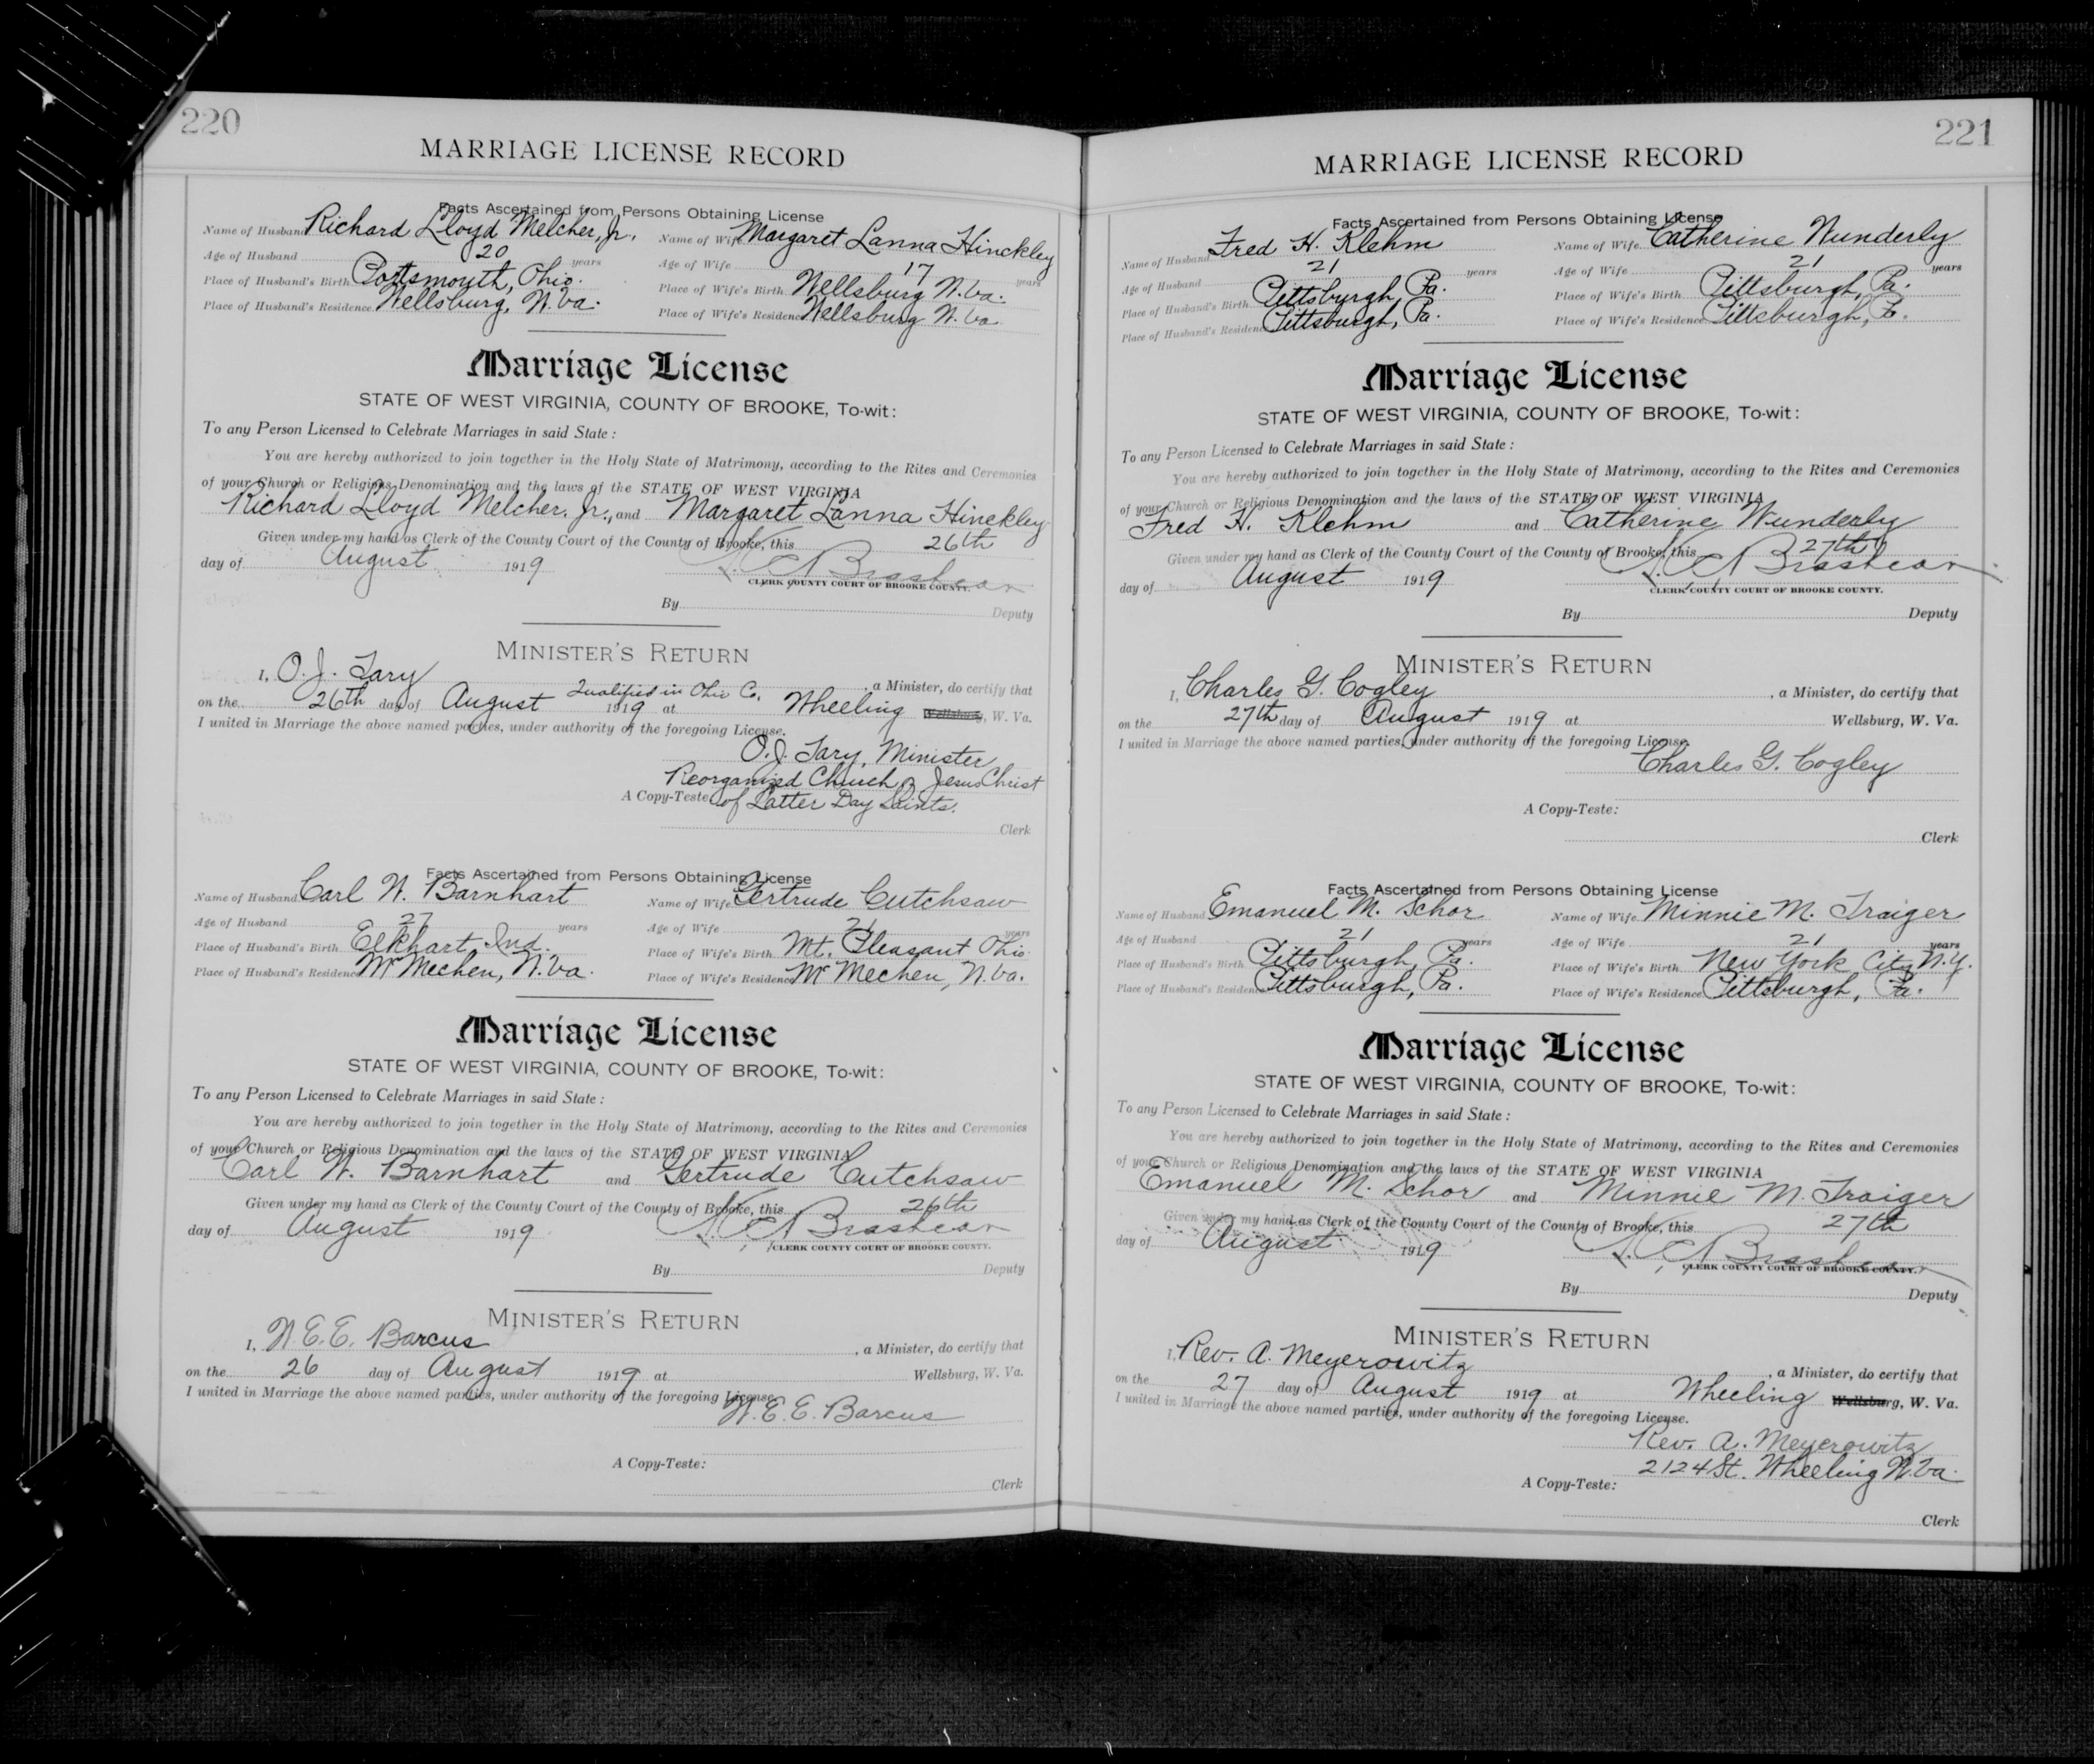 220
MARRIAGE LICENSE RECORD
Facts Ascertained from Persons Obtaining License
Name of Husband Richard Lloyd Melcher, Jr. Name of Wife Margaret Lanna Hinckley
Age of Husband 20 years Age of Wife 17 years
Place of Husband's Birth Portsmouth, Ohio. Place of Wife's Birth Wellsburg W. Va.
Place of Husband's Residence Wellsburg, W. Va. Place of Wife's Residence Wellsburg W. Va.
Marriage License
STATE OF WEST VIRGINIA, COUNTY OF BROOKE, To-wit:
To any Person Licensed to Celebrate Marriages in said State:
You are hereby authorized to join together in the Holy State of Matrimony, according to the Rites and Ceremonies
of your Church or Religious Denomination and the laws of the STATE OF WEST VIRGINIA
Richard Lloyd Melcher. Jr., and Margaret Lanna Hinckley
Given under my hand as Clerk of the County Court of the County of Brooke, this 26th
day of August 1919 Brashear
CLERK COUNTY COURT OF BROOKE COUNTY.
By Deputy
MINISTER'S RETURN
I, O. J. Tary , a Minister, do certify that
Qualified in Ohio Co.
on the 26th day of August 1919 at Wheeling Wellsburg, W. Va.
I united in Marriage the above named parties, under authority of the foregoing License.
O. J. Tary, Minister
Reorganized Church of Jesus Christ
A Copy-Teste: of Latter Day Saints.
Clerk
Facts Ascertained from Persons Obtaining License
Name of Husband Carl W. Barnhart Name of Wife Gertrude Cutchsaw
Age of Husband 27 years Age of Wife 21 years
Place of Husband's Birth Elkhart, Ind. Place of Wife's Birth Mt. Pleasant Ohio
Place of Husband's Residence McMechen, W. Va. Place of Wife's Residence McMechen, W. Va.
Marriage License
STATE OF WEST VIRGINIA, COUNTY OF BROOKE, To-wit:
To any Person Licensed to Celebrate Marriages in said State:
You are hereby authorized to join together in the Holy State of Matrimony, according to the Rites and Ceremonies
of your Church or Religious Denomination and the laws of the STATE OF WEST VIRGINIA
Carl W. Barnhart and Gertrude Cutchsaw
Given under my hand as Clerk of the County Court of the County of Brooke, this 26th
day of August 1919 Brashear
CLERK COUNTY COURT OF BROOKE COUNTY.
By Deputy
MINISTER'S RETURN
I, W. E. E. Barcus , a Minister, do certify that
on the 26 day of August 1919 at Wellsburg, W. Va.
I united in Marriage the above named parties, under authority of the foregoing License.
W. E. E. Barcus
A Copy-Teste:
Clerk
221
MARRIAGE LICENSE RECORD
Facts Ascertained from Persons Obtaining License
Name of Husband Fred H. Klehm Name of Wife Catherine Wunderly
Age of Husband 21 years Age of Wife 21 years
Place of Husband's Birth Pittsburgh, Pa. Place of Wife's Birth Pittsburgh, Pa.
Place of Husband's Residence Pittsburgh, Pa. Place of Wife's Residence Pittsburgh, Pa.
Marriage License
STATE OF WEST VIRGINIA, COUNTY OF BROOKE, To-wit:
To any Person Licensed to Celebrate Marriages in said State:
You are hereby authorized to join together in the Holy State of Matrimony, according to the Rites and Ceremonies
of your Church or Religious Denomination and the laws of the STATE OF WEST VIRGINIA
Fred H. Klehm and Catherine Wunderly
Given under my hand as Clerk of the County Court of the County of Brooke, this 27th
day of August 1919 Brashear
CLERK COUNTY COURT OF BROOKE COUNTY.
By Deputy
MINISTER'S RETURN
I, Charles G. Cogley , a Minister, do certify that
on the 27th day of August 1919 at Wellsburg, W. Va.
I united in Marriage the above named parties, under authority of the foregoing License.
Charles G. Cogley
A Copy-Teste:
Clerk
Facts Ascertained from Persons Obtaining License
Name of Husband Emanuel M. Schor Name of Wife Minnie M. Traiger
Age of Husband 21 years Age of Wife 21 years
Place of Husband's Birth Pittsburgh, Pa. Place of Wife's Birth New York City N.Y.
Place of Husband's Residence Pittsburgh, Pa. Place of Wife's Residence Pittsburgh, Pa.
Marriage License
STATE OF WEST VIRGINIA, COUNTY OF BROOKE, To-wit:
To any Person Licensed to Celebrate Marriages in said State:
You are hereby authorized to join together in the Holy State of Matrimony, according to the Rites and Ceremonies
of your Church or Religious Denomination and the laws of the STATE OF WEST VIRGINIA
Emanuel M. Schor and Minnie M. Traiger
Given under my hand as Clerk of the County Court of the County of Brooke, this 27th
day of August 1919 Brashear
CLERK COUNTY COURT OF BROOKE COUNTY.
By Deputy
MINISTER'S RETURN
I, Rev. A. Meyerowitz , a Minister, do certify that
on the 27 day of August 1919 at Wheeling Wellsburg, W. Va.
I united in Marriage the above named parties, under authority of the foregoing License.
Rev. A. Meyerowitz
2124 St. Wheeling W. Va.
A Copy-Teste:
Clerk